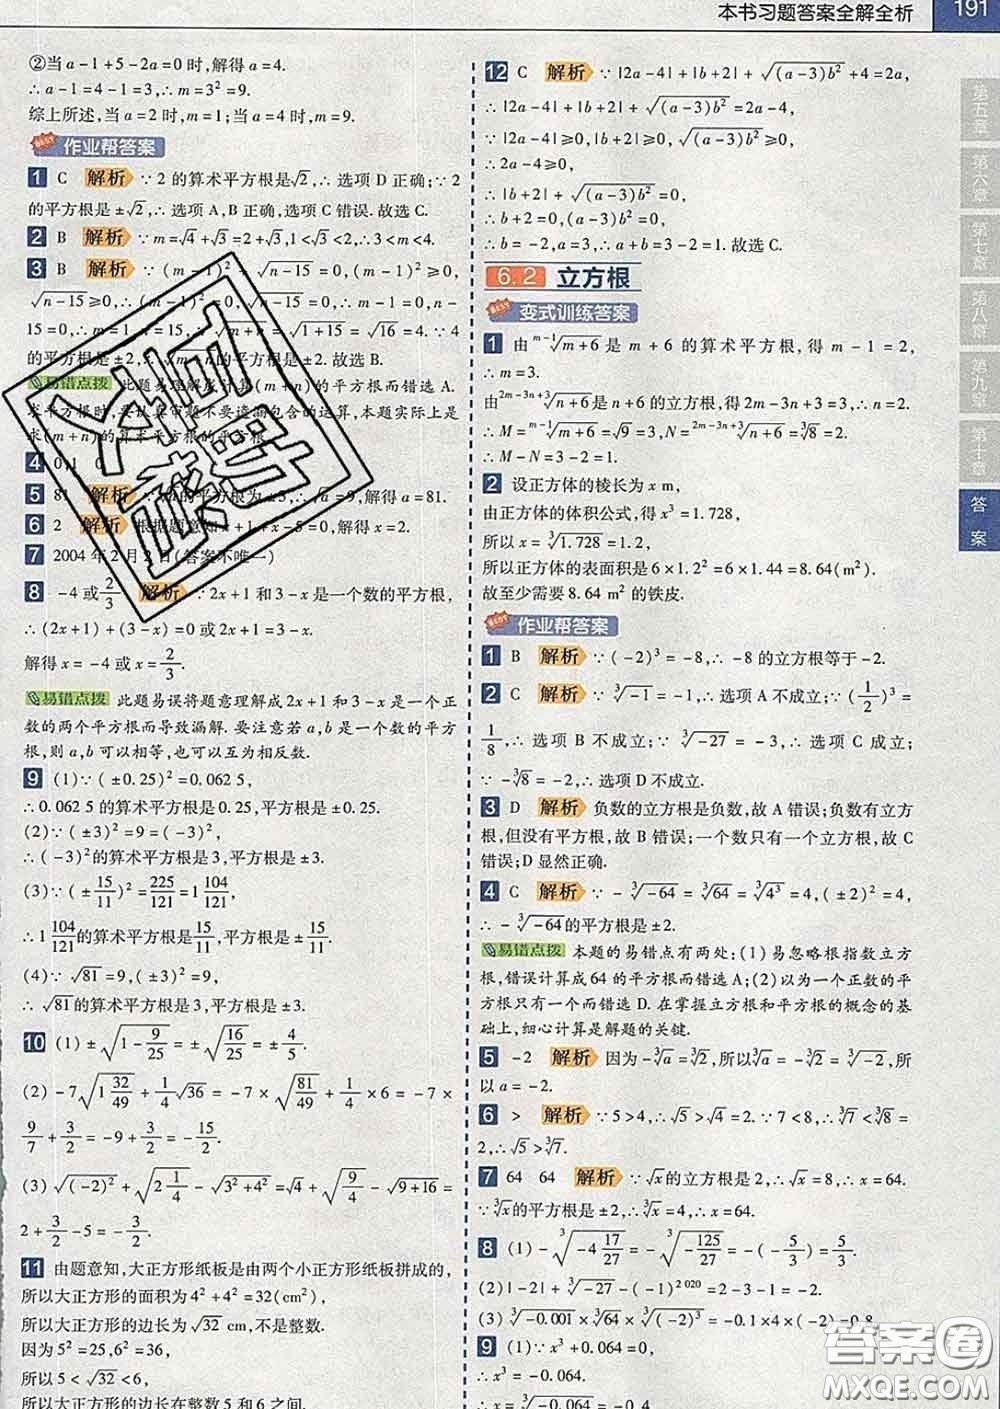 本书习题答案全解全析
191
②当 a-1+5-2a=0 时,解得 a=4.
∴ a-1=4-1=3,∴ m=3²=9.
综上所述,当 a=2 时,m=1;当 a=4 时,m=9.
作业帮答案
1 C 解析 ∵ 2 的算术平方根是√2,∴ 选项 D 正确;∵ 2
的平方根是±√2,∴ 选项 A,B 正确,选项 C 错误.故选 C.
2 B 解析 ∵ m=√4+√3=2+√3,1<√3<2,∴ 3<m<4.
3 B 解析 ∵ (m-1)²+√(n-15)=0,(m-1)²≥0,
√(n-15)≥0,∴ m=1,n=15,∴ √(m+n)=√(1+15)=√16=4.∵ 4
的平方根是±2,∴ √(m+n)的平方根是±2.故选 B.
易错点拨 此题易理解成计算(m+n)的平方根而错选 A.
求平方根时,要认真审题不要遗漏包含的运算,本题实际上是
求(m+n)的算术平方根的平方根.
4 0,1 0
5 81 解析 ∵ √a的平方根为±3,∴ √a=9,解得 a=81.
6 2 解析 根据题意知 x+1+x-5=0,解得 x=2.
7 2004 年 2 月 2 日(答案不唯一)
8 -4 或2/3 解析 ∵ 2x+1 和 3-x 是一个数的平方根,
∴ (2x+1)+(3-x)=0 或 2x+1=3-x.
解得 x=-4 或 x=2/3.
易错点拨 此题易误将题意理解成 2x+1 和 3-x 是一个正
数的两个平方根而导致漏解.要注意若 a,b 是一个数的平方
根,则 a,b 可以相等,也可以互为相反数.
9 (1)∵ (±0.25)²=0.062 5,
∴ 0.062 5 的算术平方根是 0.25,平方根是±0.25.
(2)∵ (±3)²=9=(-3)²,
∴ (-3)²的算术平方根是 3,平方根是±3.
(3)∵ (±15/11)²=225/121=1 104/121,
∴ 1 104/121的算术平方根是15/11,平方根是±15/11.
(4)∵ √81=9,(±3)²=9,
∴ √81的算术平方根是 3,平方根是±3.
10 (1)±√(1-9/25)=±√(16/25)=±4/5.
(2)-7√(1 32/49)+√(1/4)√36=-7×√(81/49)+√(1/4)×6=-7×
9/7+3/2=-9+3/2=-15/2.
(3)√((-2)²)+√(2 1/4)-√(3²+4²)=√4+√(9/4)-√(9+16)=
2+3/2-5=-3/2.
11 由题意知,大正方形纸板是由两个小正方形纸板拼成的,
所以大正方形的面积为 4²+4²=32(cm²),
所以大正方形的边长为√32 cm,不是整数.
因为 5²=25,6²=36,
所以 5<√32<6,
所以大正方形的边长在整数 5 和 6 之间.
12 C 解析 ∵ |2a-4|+|b+2|+√((a-3)b²)+4=2a,
∴ |2a-4|+|b+2|+√((a-3)b²)=2a-4,
∵ |2a-4|≥0,|b+2|≥0,√((a-3)b²)≥0,
∴ 2a-4≥0,
∴ |b+2|+√((a-3)b²)=0,
∴ b+2=0,(a-3)b²=0,
∴ b=-2,a=3,∴ a+b=3-2=1.故选 C.
6.2 立方根
变式训练答案
1 由 ᵐ⁻¹√(m+6) 是 m+6 的算术平方根,得 m-1=2,
∴ m=3.
由²ᵐ⁻³ⁿ⁺³√(n+6)是 n+6 的立方根,得 2m-3n+3=3,∴ n=2.
∴ M=ᵐ⁻¹√(m+6)=√9=3,N=²ᵐ⁻³ⁿ⁺³√(n+6)=³√8=2.
∴ M-N=3-2=1.
2 设正方体的棱长为 x m,
由正方体的体积公式,得 x³=1.728,
所以 x=³√1.728=1.2,
所以正方体的表面积是 6×1.2²=6×1.44=8.64(m²).
故至少需要 8.64 m² 的铁皮.
作业帮答案
1 B 解析 ∵ (-2)³=-8,∴ -8 的立方根等于-2.
2 C 解析 ∵ ³√-1=-1,∴ 选项 A 不成立;∵ (1/2)³=
1/8,∴ 选项 B 不成立;∵ ³√-27=-3,∴ 选项 C 成立;
∵ -³√8=-2,∴ 选项 D 不成立.
3 D 解析 负数的立方根是负数,故 A 错误;负数有立方
根,但没有平方根,故 B 错误;一个数只有一个立方根,故 C
错误;D 显然正确.
4 C 解析 ∵ -³√-64=³√64=³√4³=4,(±2)²=4,
∴ -³√-64的平方根是±2.
易错点拨 本题的易错点有两处:(1)易忽略根指数立方
根,错误计算成 64 的平方根而错选 A;(2)以为一个正数的平
方根只有一个而错选 D.在掌握立方根和平方根的概念的基
础上,细心计算是解题的关键.
5 -2 解析 因为-³√a=³√2,所以³√a=-³√2=³√-2,所
以 a=-2.
6 > 解析 ∵ 5>4,∴ √5>√4=2.∵ 7<8,∴ ³√7<³√8=
2,∴ √5>³√7.
7 64 64 解析 ∵ √x的立方根是 2,∴ √x=8,∴ x=64.
∵ ³√x的平方根是±2,∴ ³√x=4,∴ x=64.
8 (1)-³√(-4 17/27)=-³√(-125/27)=-(-5/3)=5/3.
(2)|-2|+³√-27-(-1)²⁰²⁰=2-3-1=-2.
(3)³√-0.001×³√64×³√((-2)³)=-0.1×4×(-2)=0.8.
9 (1)∵ x³+0.064=0,
∴ x³=-0.064,
∴ x=³√-0.064=-0.4.
第五章
第六章
第七章
第八章
第九章
第十章
答案
答案圈
MXQE.COM